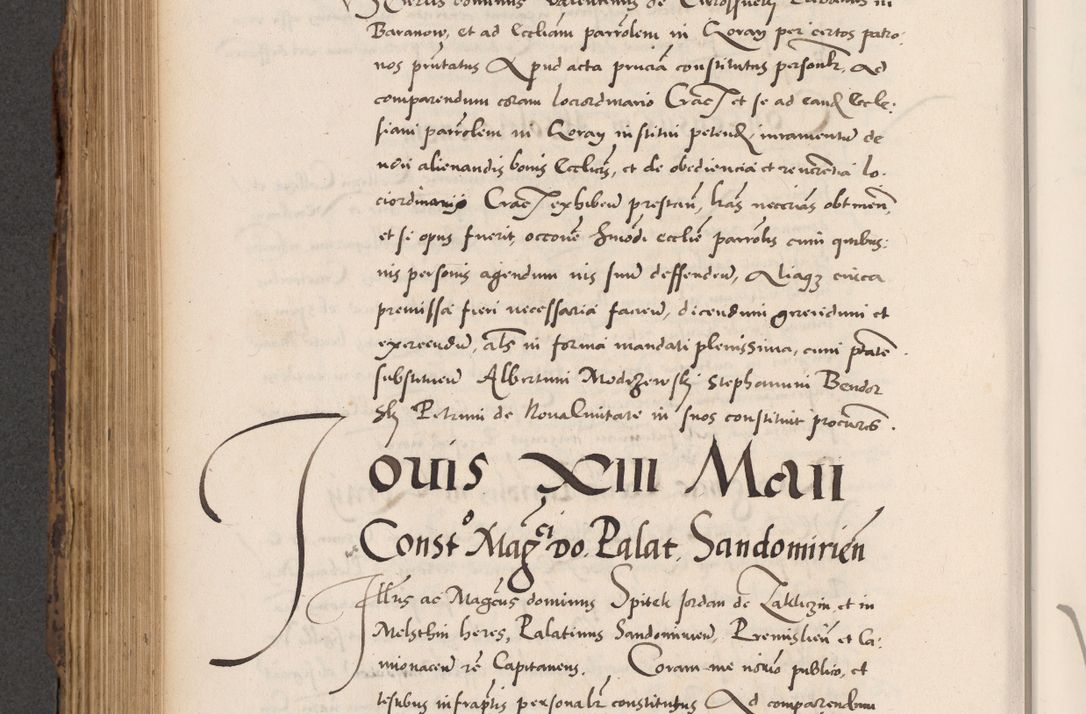 dominus Valentinus de
Baranow, et ad Eccliam parrolem in Goray per certos patro-
nos pntatus Apud acta pncia constitutus personlr, Ad
comparendum coram lociordinario Crac et se ad eand Eccle:
siam parrolem in Goray institui petend, iuramentu de
non alienandis bonis Ecclie, et de obediencia et reuerentia lo-
ciordinario Crac exhiberi prestan, lras neccrias obtinen,
et se opus fuerit, occone hmodi ecclie parrolis cum quibus-
uis personis agendum uis suu deffenden, Aliaqz circa
premissa fieri necessaria facien, dicendum gerendum et
exercendu, als in forma mandati plenissima, cum ptate
substituen Albertum Modrzewski Stephanum Bendor
ski Petrum de Noua Ciuitate in suos constituit procures.
Iouis XIII Maii
Consto Magci Do. Palat. Sandomirien
Illris ac Magcus dominus Spitek Jordan de Zakliczin, et in
Melsthin heres, Palatinus Sandomirien, Premislien et Ca-
mionacen re Capitaneus. Coram me norio publico, et
testibus infraptis personalr constitutus Ad comparendum